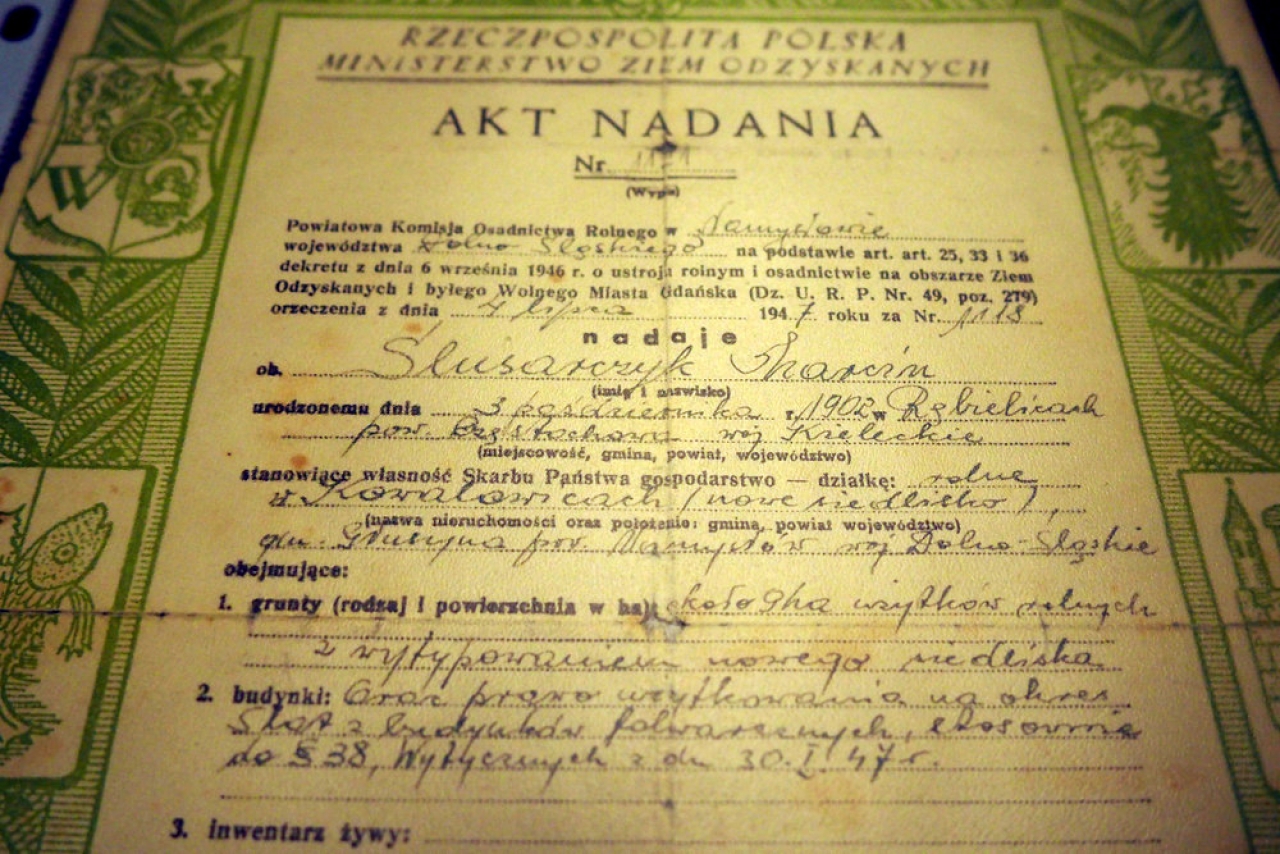 RZECZPOSPOLITA POLSKA
MINISTERSTWO ZIEM ODZYSKANYCH
AKT NADANIA
Nr
(Wypis)
Powiatowa Komisja Osadnictwa Rolnego w Namysłowie
województwa Dolno Śląskiego na podstawie art. art. 25, 33 i 36
dekretu z dnia 6 września 1946 r. o ustroju rolnym i osadnictwie na obszarze Ziem
Odzyskanych i byłego Wolnego Miasta Gdańska (Dz. U. R. P. Nr. 49, poz. 279)
orzeczenia z dnia 4 lipca 1947 roku za Nr. 1118
nadaje
ob. Ślusarczyk Marcin
(imię i nazwisko)
urodzonemu dnia 3 października r. 1902 w Rębielicach
pow. Częstochowa woj Kieleckie
(miejscowość, gmina, powiat, województwo)
stanowiące własność Skarbu Państwa gospodarstwo — działkę: rolne
w Kowalowicach (nowe siedlisko),
(nazwa nieruchomości oraz położenie: gmina, powiat województwo)
gm. Głuszyna pow. Namysłów woj Dolno-Śląskie
obejmujące:
1. grunty (rodzaj i powierzchnia w ha): około 9 ha użytków rolnych
z wytypowaniem nowego siedliska
2. budynki: Oraz prawo użytkowania na okres
5 lat z budynków folwarcznych, stosownie
do § 38, Wytycznych z dn 30.I.47 r.
3. inwentarz żywy:
W